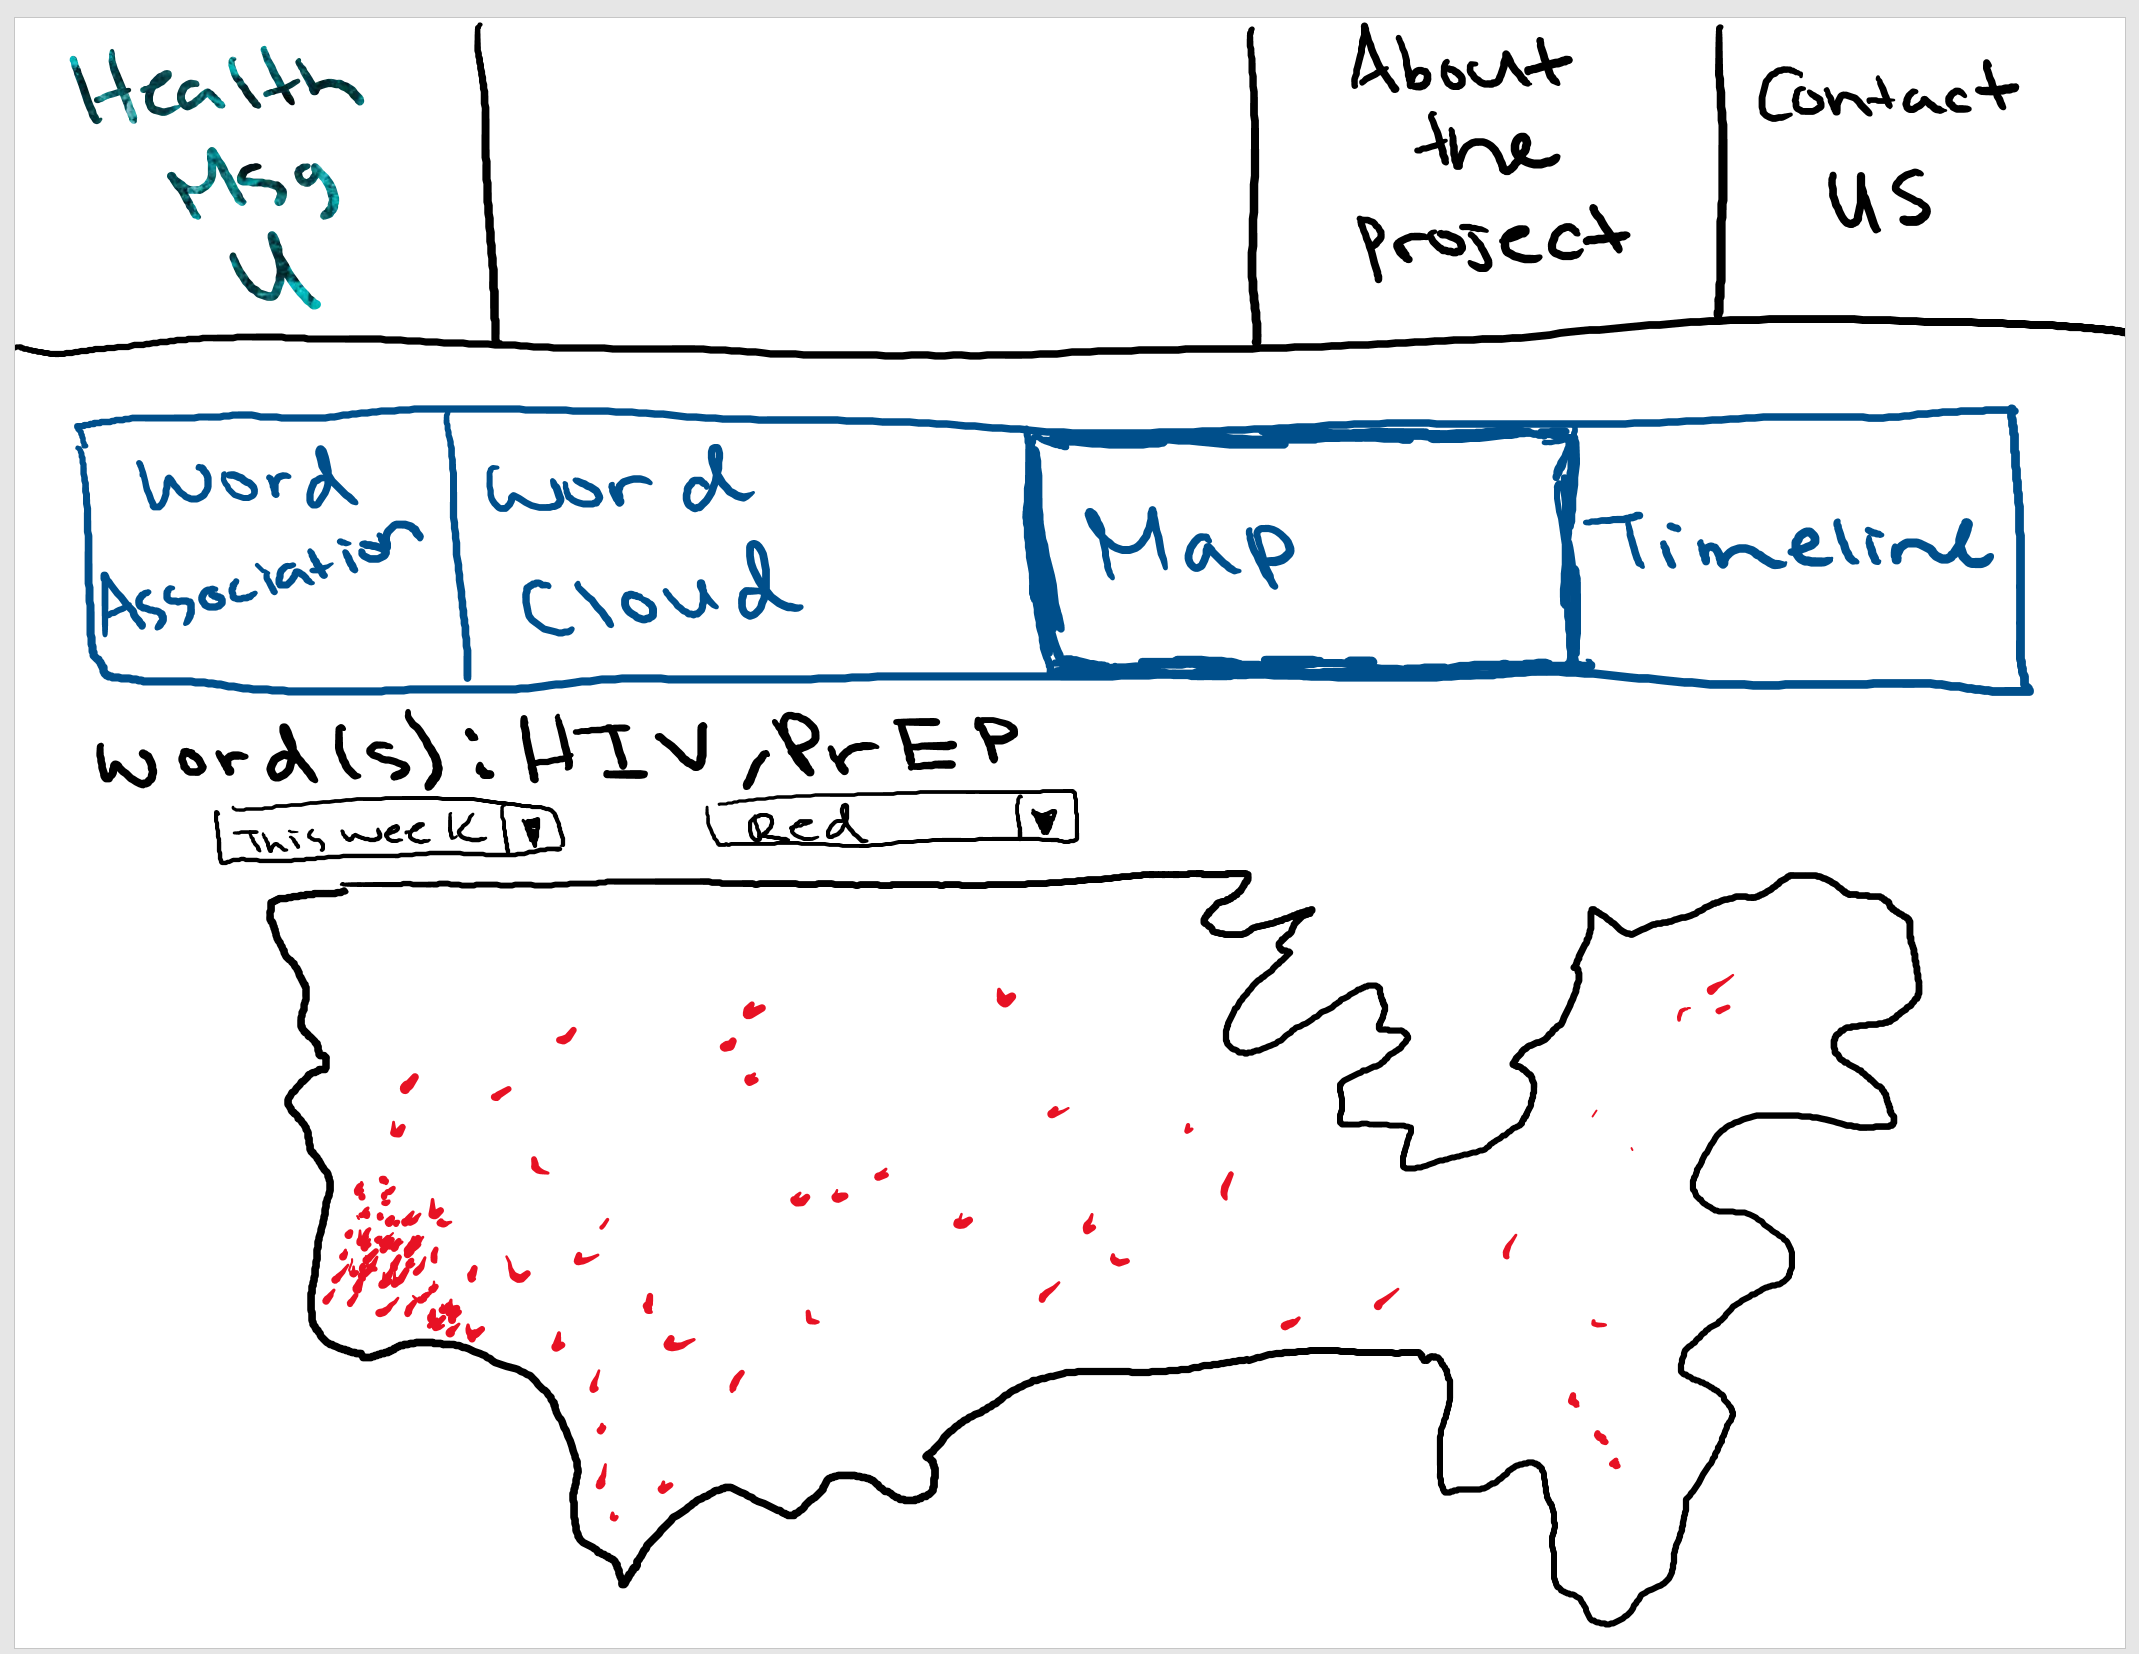 Health
Msg
U
About
the
project
Contact
US
Word
Association
Word
Cloud
Map
Timeline
Word(s): HIV, PrEP
This week
Red